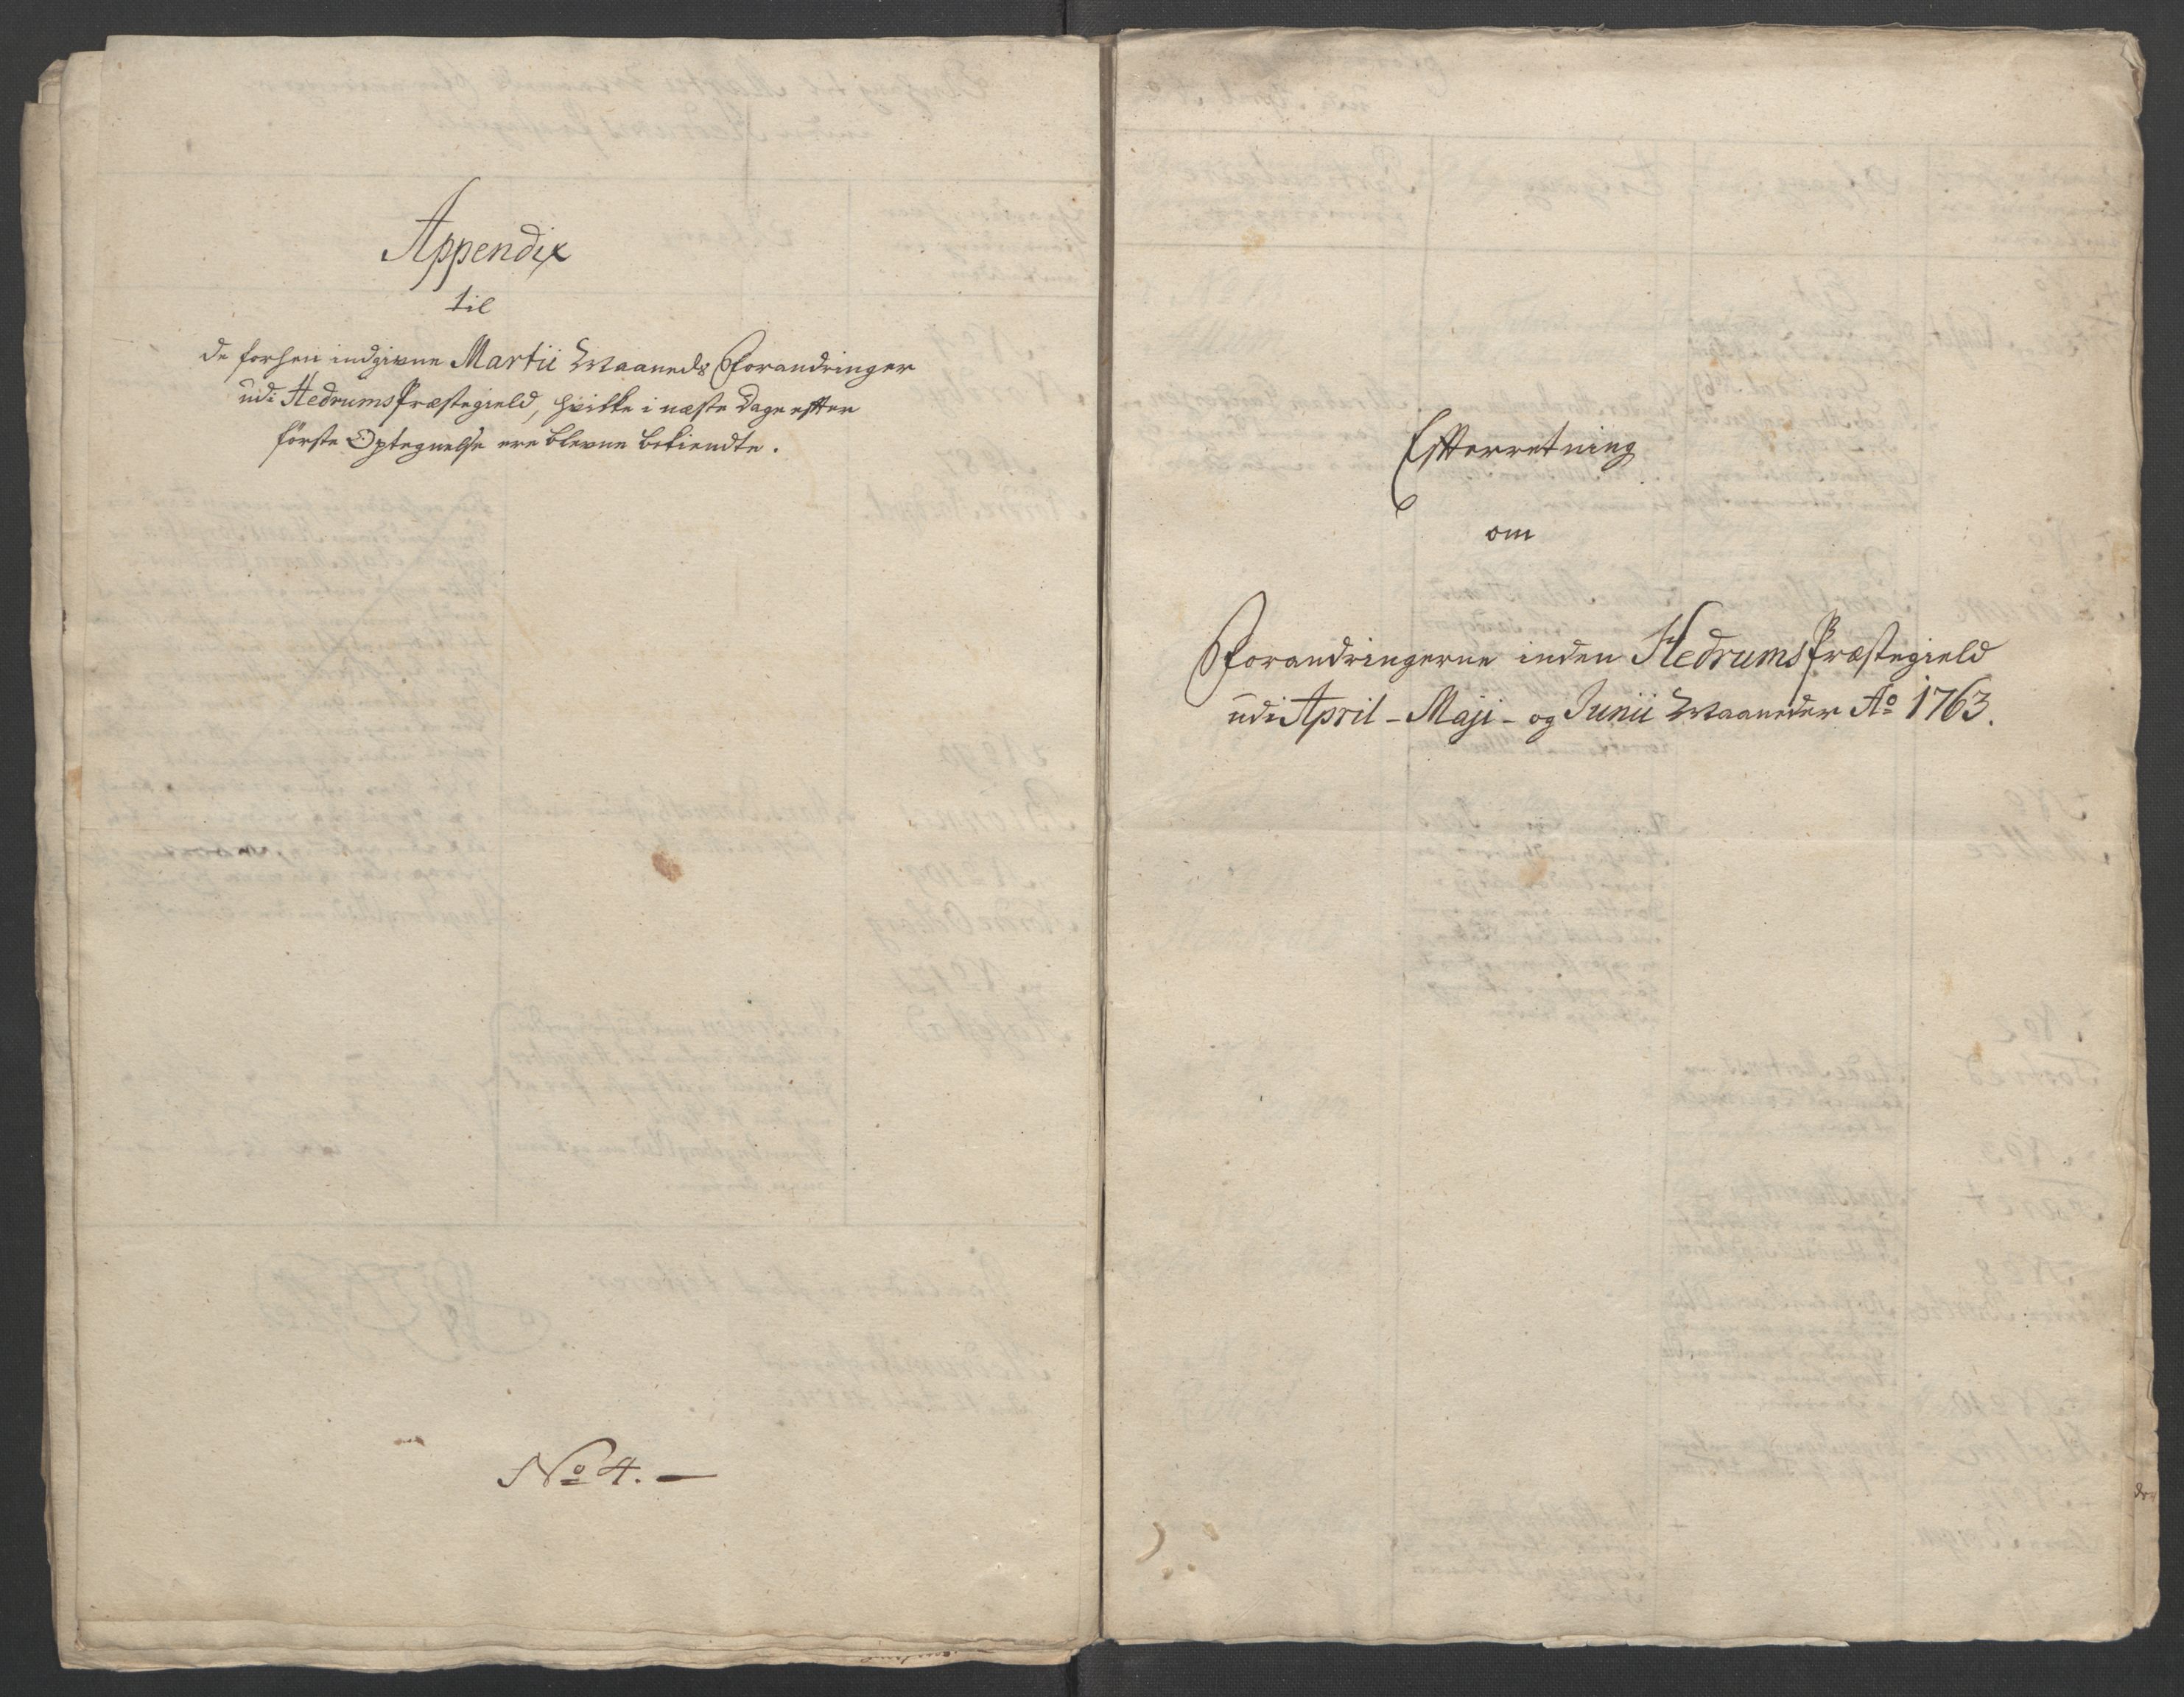 Appendix
til
de forhen indgivne Martii Maaneds Forandringer
udi Hedrums Præstegield, hvilke i næste Dage efter
förste Optegnelse ere blevne bekiendte.
No 4. -
Efterretning
om
Forandringerne inden Hedrums Præstegield
udi April - Maji - og Junii Maaneder Ao 1763.